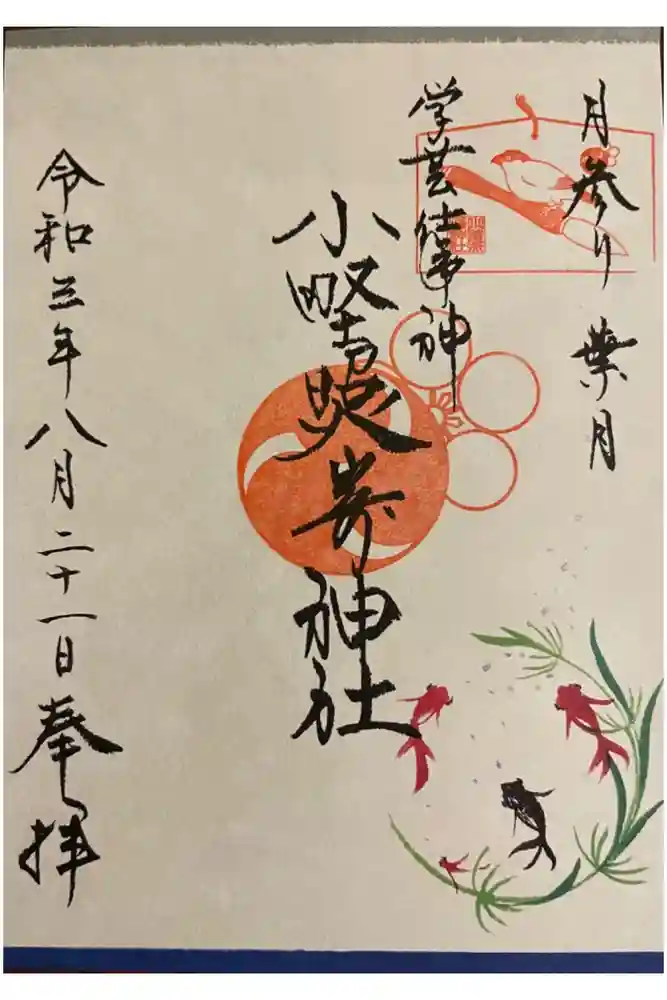 月参り 葉月
学芸仕事神
小野照崎神社
令和三年八月二十一日 奉拝